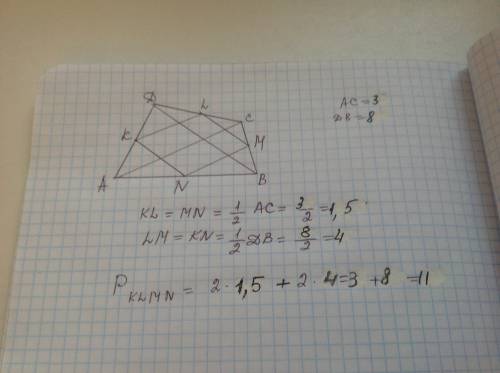 D
L
C
K
M
A
N
B
AC = 3
DB = 8
KL = MN = 1/2 AC = 3/2 = 1,5
LM = KN = 1/2 DB = 8/2 = 4
P KLMN = 2 · 1,5 + 2 · 4 = 3 + 8 = 11